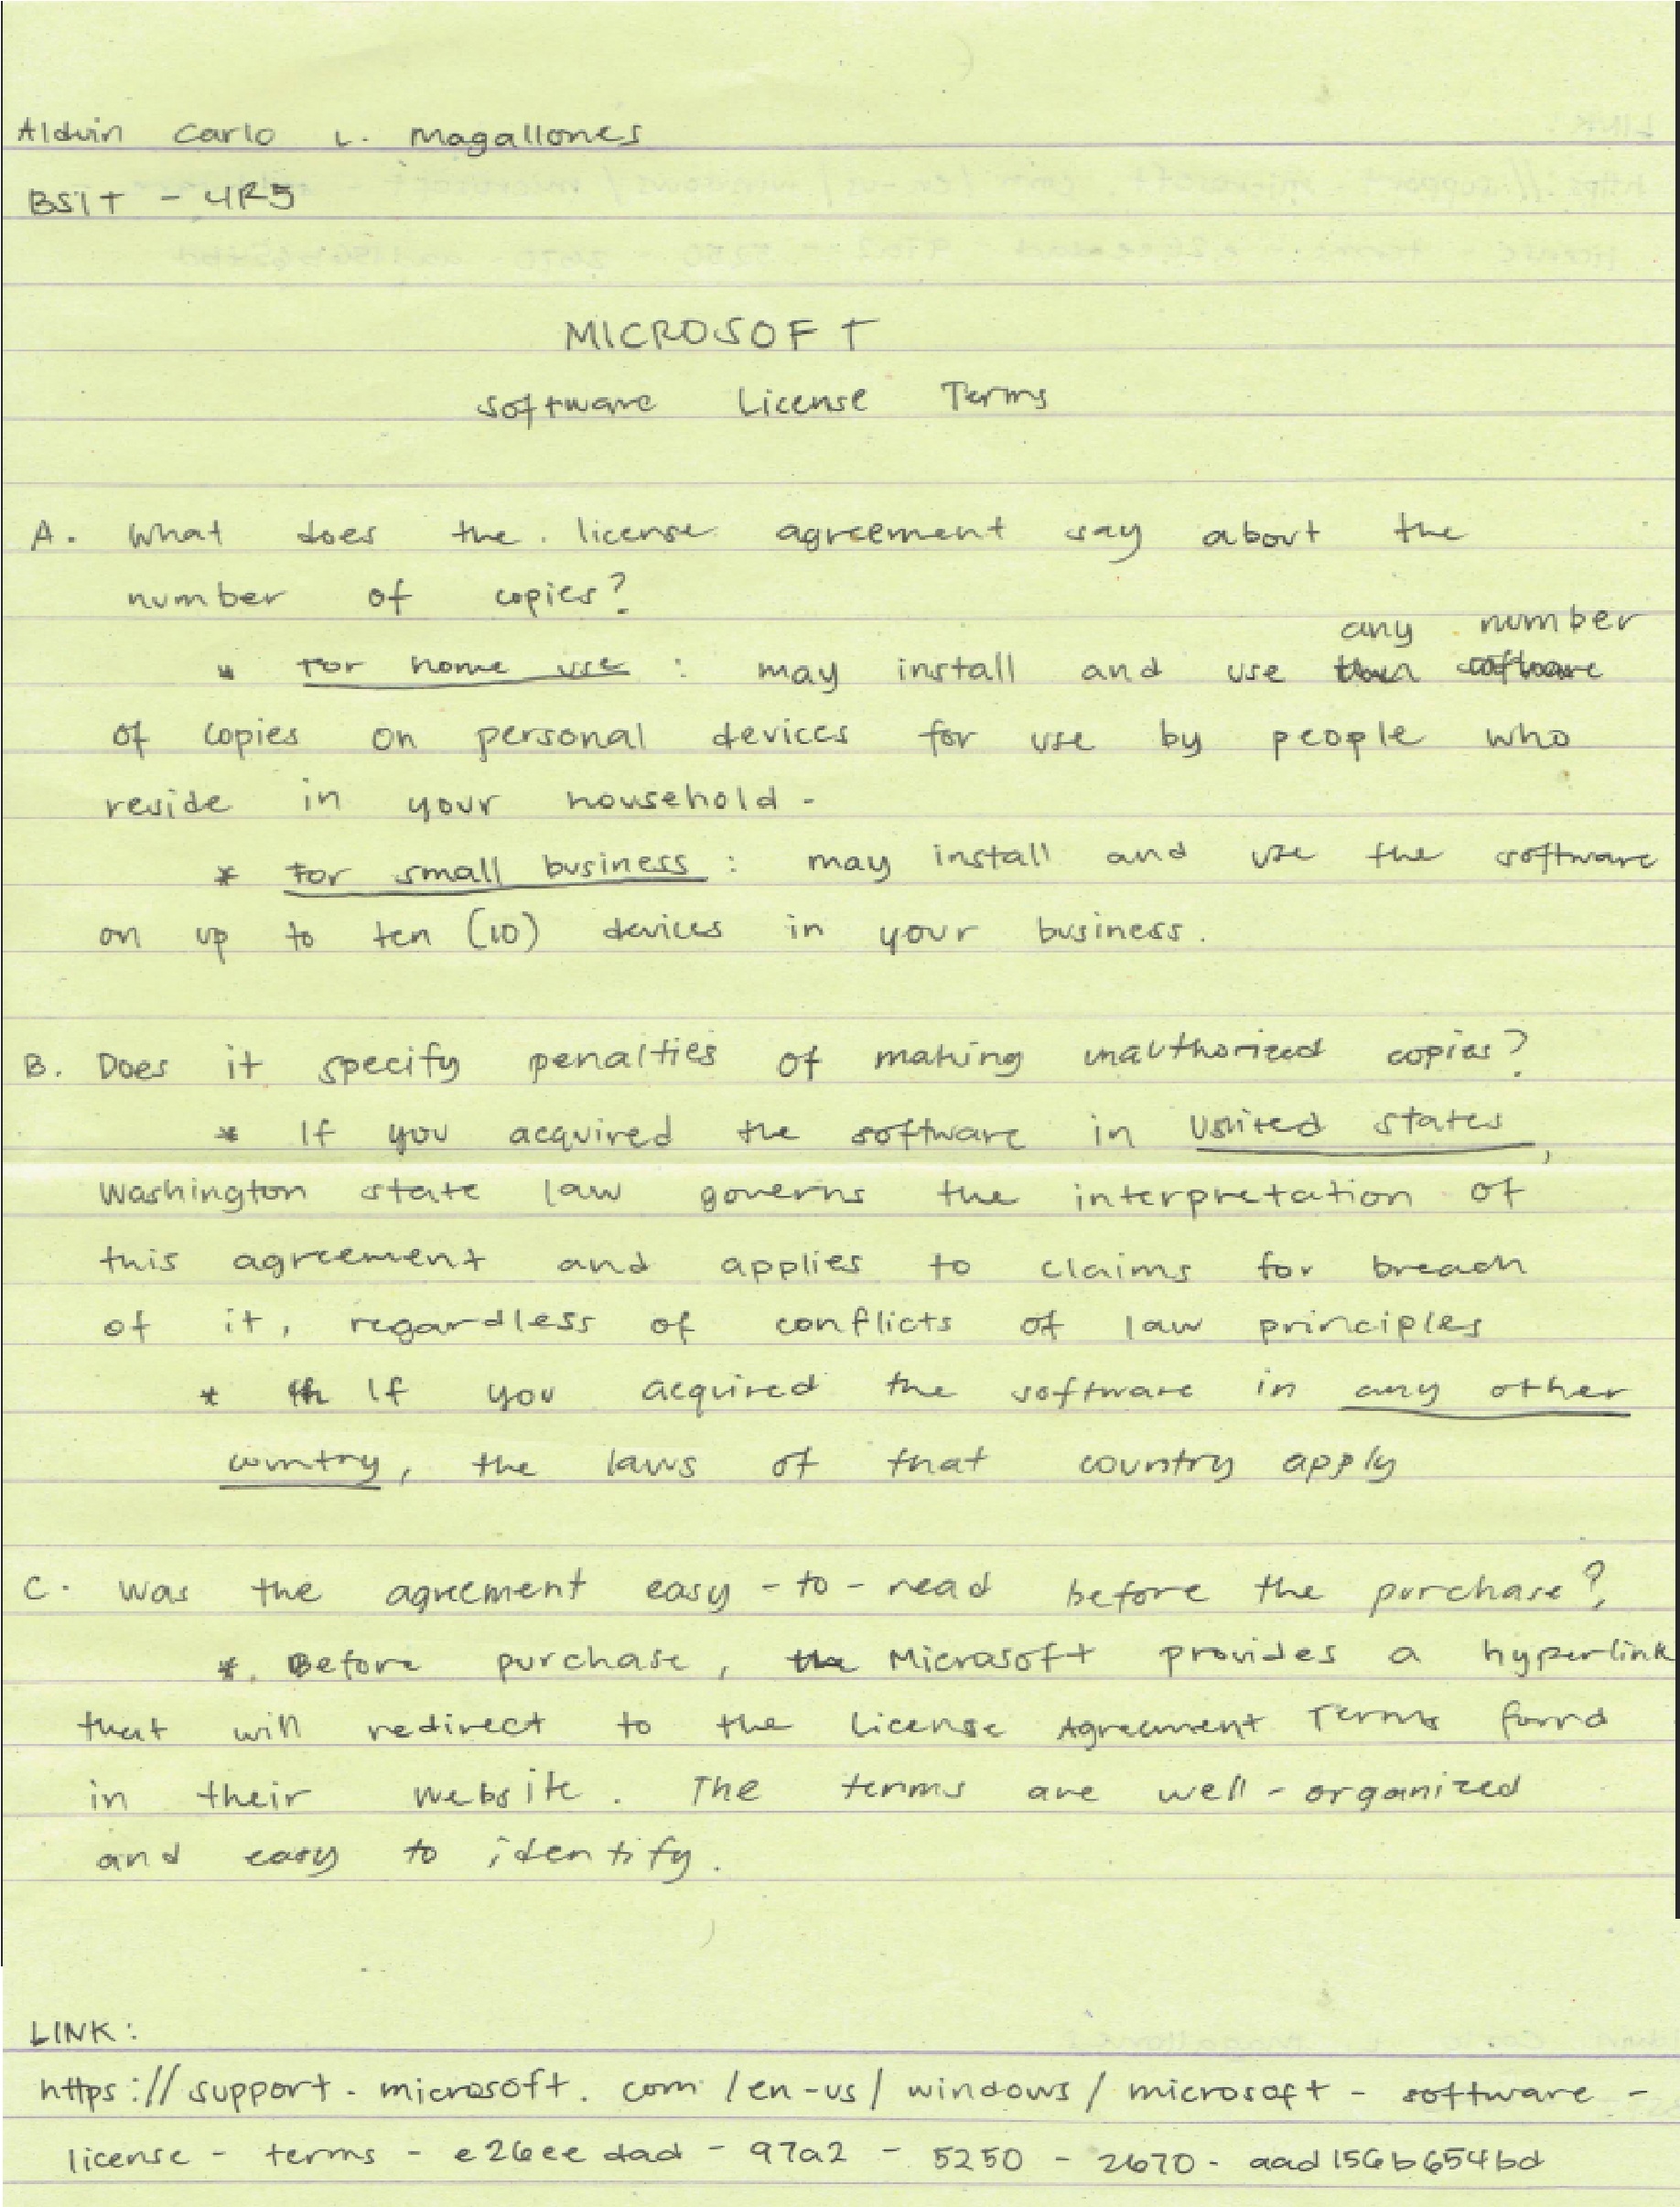 Aldwin Carlo L. Magallones
BSIT - 4R5
MICROSOFT
Software License Terms
A. What does the license agreement say about the
number of copies?
any number
* For home use : may install and use
of copies on personal devices for use by people who
reside in your household -
* For small business : may install and use the software
on up to ten (10) devices in your business.
B. Does it specify penalties of making unauthorized copies?
* If you acquired the software in United States,
Washington state law governs the interpretation of
this agreement and applies to claims for breach
of it, regardless of conflicts of law principles
* If you acquired the software in any other
country, the laws of that country apply
C. Was the agreement easy-to-read before the purchase?
*. Before purchase, the Microsoft provides a hyperlink
that will redirect to the License Agreement Terms found
in their website. The terms are well-organized
and easy to identify.
LINK:
https://support.microsoft.com/en-us/windows/microsoft-software-
license-terms-e26eedad-97a2-5250-2670-aad156b654bd